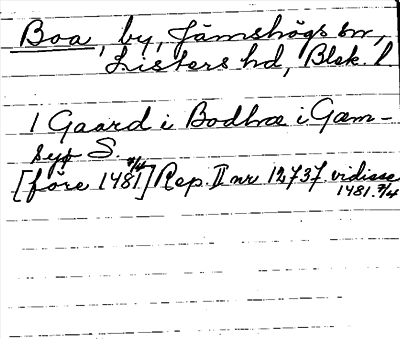 Boa, by, Jämshögs sn,
Listers hd, Blek. l.
1 Gaard i Bodhæ i Gæm-
syø S.
[före 1481 7/4] Rep. II nr 12737 vidisse
1481. 7/4